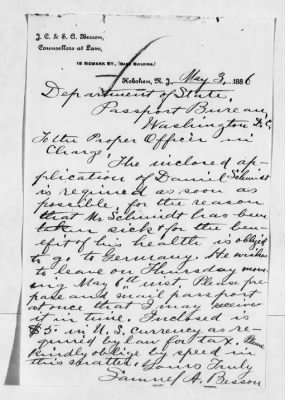 J. C. & S. A. Besson,
Counsellors at Law,
18 Newark St., (Bank Building.)
Hoboken, N. J., May 3, 1886
Department of State,
Passport Bureau,
Washington D.C.
To the Proper Officer in
Charge,
The inclosed ap-
plication of Daniel Schmidt
is required as soon as
possible for the reason
that Mr Schmidt has been
taken sick & for the ben-
efit of his health is obliged
to go to Germany. He wishes
to leave on Thursday morn-
ing May 6th inst. Please pre-
pare and mail passport
at once that I may receive
it in time. Inclosed is
$5. in U. S. currency as re-
quired by law for tax. Please
kindly oblige by speed in
this matter. Yours Truly
Samuel A. Besson